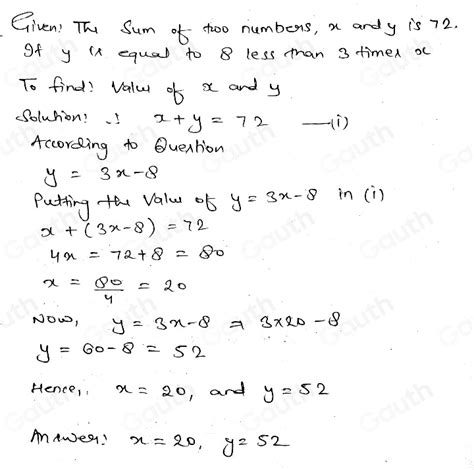 Given: The Sum of two numbers, x and y is 72.
If y is equal to 8 less than 3 times x
To find: Value of x and y
Solution: ∴ x + y = 72 —(i)
According to Question
y = 3x-8
Putting the Value of y = 3x-8 in (i)
x + (3x-8) = 72
4x = 72+8 = 80
x = 80/4 = 20
Now, y = 3x-8 ⇒ 3x20-8
y = 60-8 = 52
Hence, x = 20, and y = 52
Answer: x = 20, y = 52